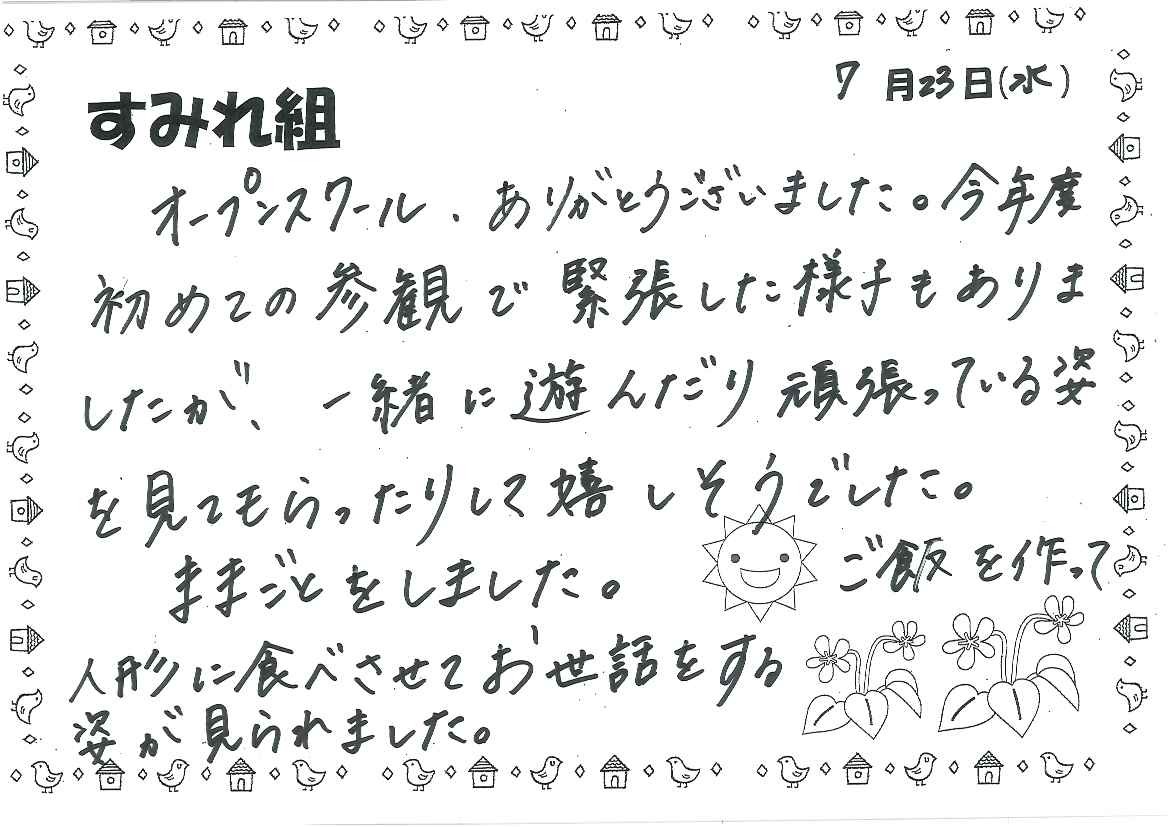 7月23日(水)
すみれ組
オープンスクール、ありがとうございました。今年度
初めての参観で緊張した様子もありま
したが、一緒に遊んだり頑張っている姿
を見てもらったりして嬉しそうでした。
ままごとをしました。ご飯を作って
人形に食べさせてお世話をする
姿が見られました。